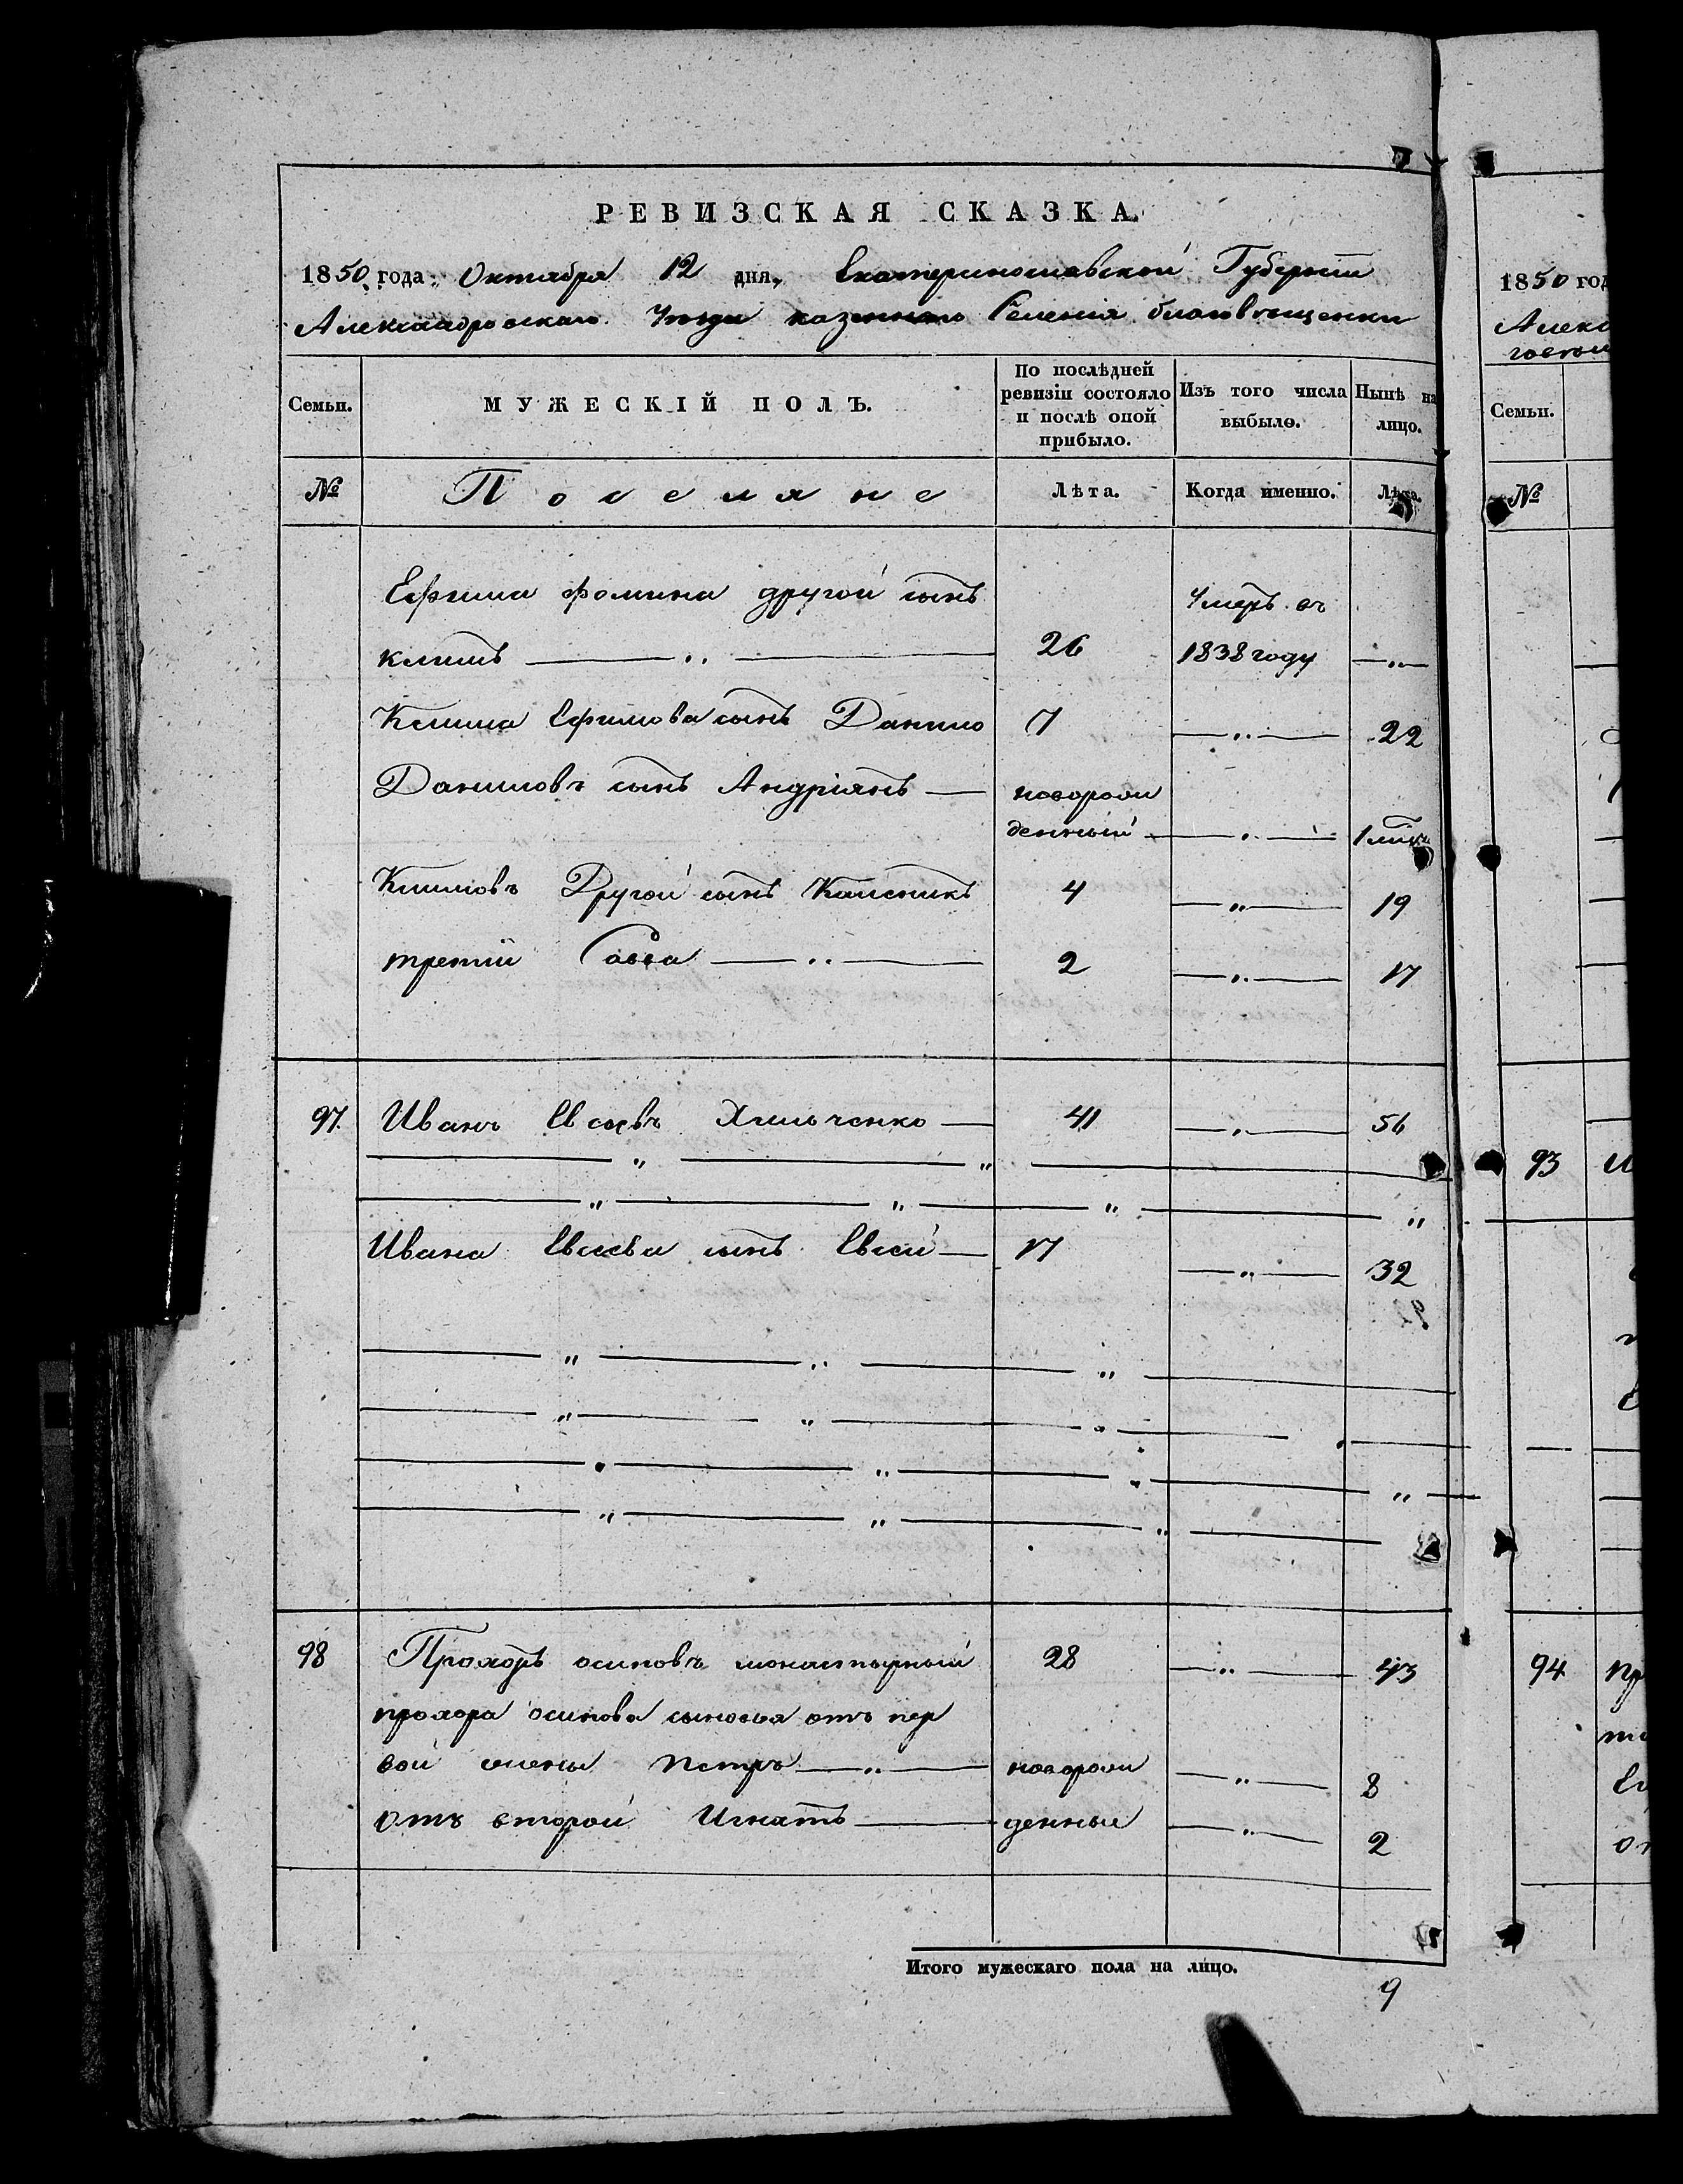 РЕВИЗСКАЯ СКАЗКА.
1850 года Октября 12 дня, Екатеринославской Губернии
Александровскаго Уезда казеннаго Селенія благовѣщенки
Семьи. МУЖЕСКІЙ ПОЛЪ. По послѣдней ревизіи состояло и послѣ оной прибыло. Изъ того числа выбыло. Нынѣ на лицо.
№ Поселяне Лѣта. Когда именно. Лѣта.
Ефима фомина другой сынъ Умеръ въ
климъ — „ — 26 1838 году — „ —
Клима Ефимова сынъ Данило 7 — „ — 22
Даниловъ сынъ Андріянъ — новорож
денный — „ — 1
Климовъ Другой сынъ Каленикъ 4 — „ — 19
третий Савва — „ — 2 — „ — 17
97. Иванъ Евсеевъ Хмильченко — 41 — „ — 56
Ивана Евсеева сынъ Евсей — 17 — „ — 32
98 Прохоръ осиповъ монастырный 28 — „ — 43
прохора осипова сыновья отъ пер
вой жены Петръ — „ — новорож — „ — 8
отъ второй Игнатъ — денные — „ — 2
Итого мужескаго пола на лицо.
9
1850 год
Алекс
Семьи.
№
93
94 пр